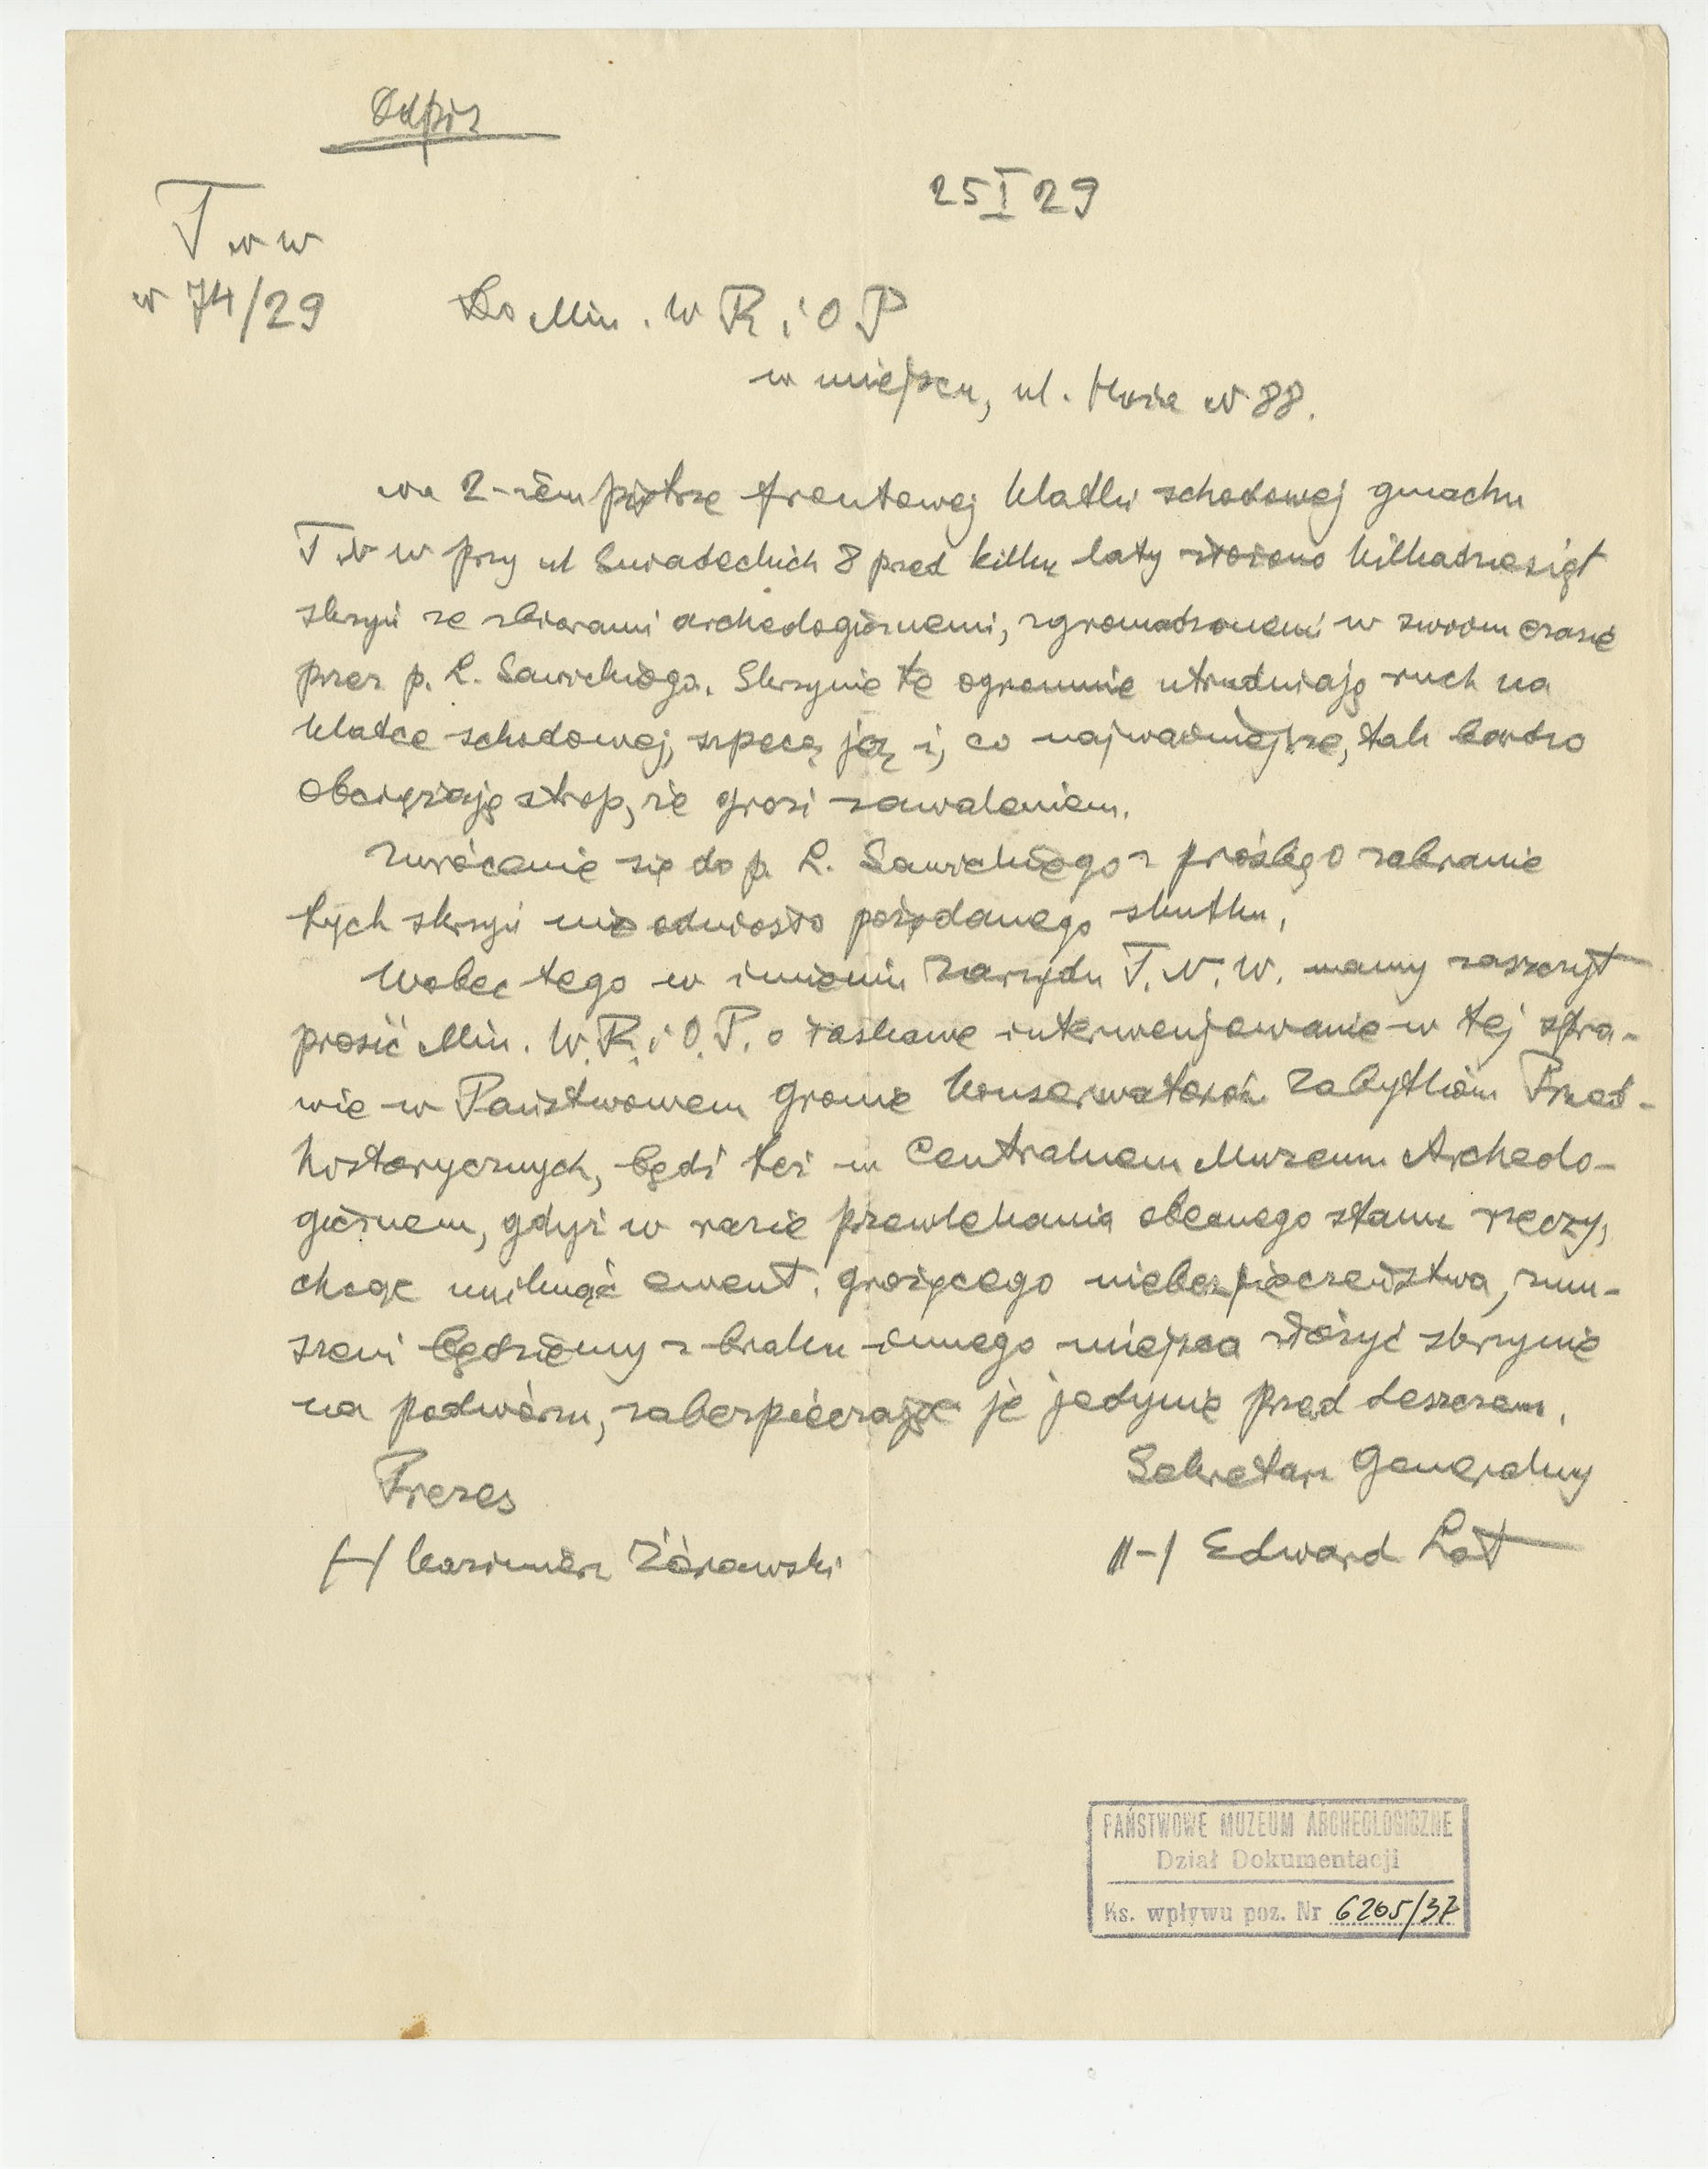 Odpis
25 I 29
T N W
N 74/29
Do Min. W R i O P
w miejscu, ul. Hoża N 88.
na 2-iem piętrze frontowej klatki schodowej gmachu
T N W przy ul Śniadeckich 8 przed kilku laty złożono kilkadziesiąt
skrzyń ze zbiorami archeologicznemi, zgromadzonemi w swoim czasie
przez p. L. Sawickiego. Skrzynie te ogromnie utrudniają ruch na
klatce schodowej, szpecą ją i, co najważniejsze, tak bardzo
obciążają strop, że grozi zawaleniem.
Zwrócenie się do p. L. Sawickiego z prośbą o zabranie
tych skrzyń nie odniosło pożądanego skutku.
Wobec tego w imieniu Zarządu T. N. W. mamy zaszczyt
prosić Min. W. R. i O. P. o łaskawe interwenjowanie w tej spra-
wie w Państwowem Gronie Konserwatorów Zabytków Przed-
historycznych, bądź też w Centralnem Muzeum Archeolo-
gicznem, gdyż w razie przewlekania obecnego stanu rzeczy,
chcąc uniknąć ewent. grożącego niebezpieczeństwa, zmu-
szeni będziemy z braku innego miejsca złożyć skrzynie
na podwórzu, zabezpieczając je jedynie przed deszczem.
Prezes
Sekretarz Generalny
/-/ Kazimierz Żórawski
/-/ Edward Lot
PAŃSTWOWE MUZEUM ARCHEOLOGICZNE
Dział Dokumentacji
Ks. wpływu poz. Nr 6205/37